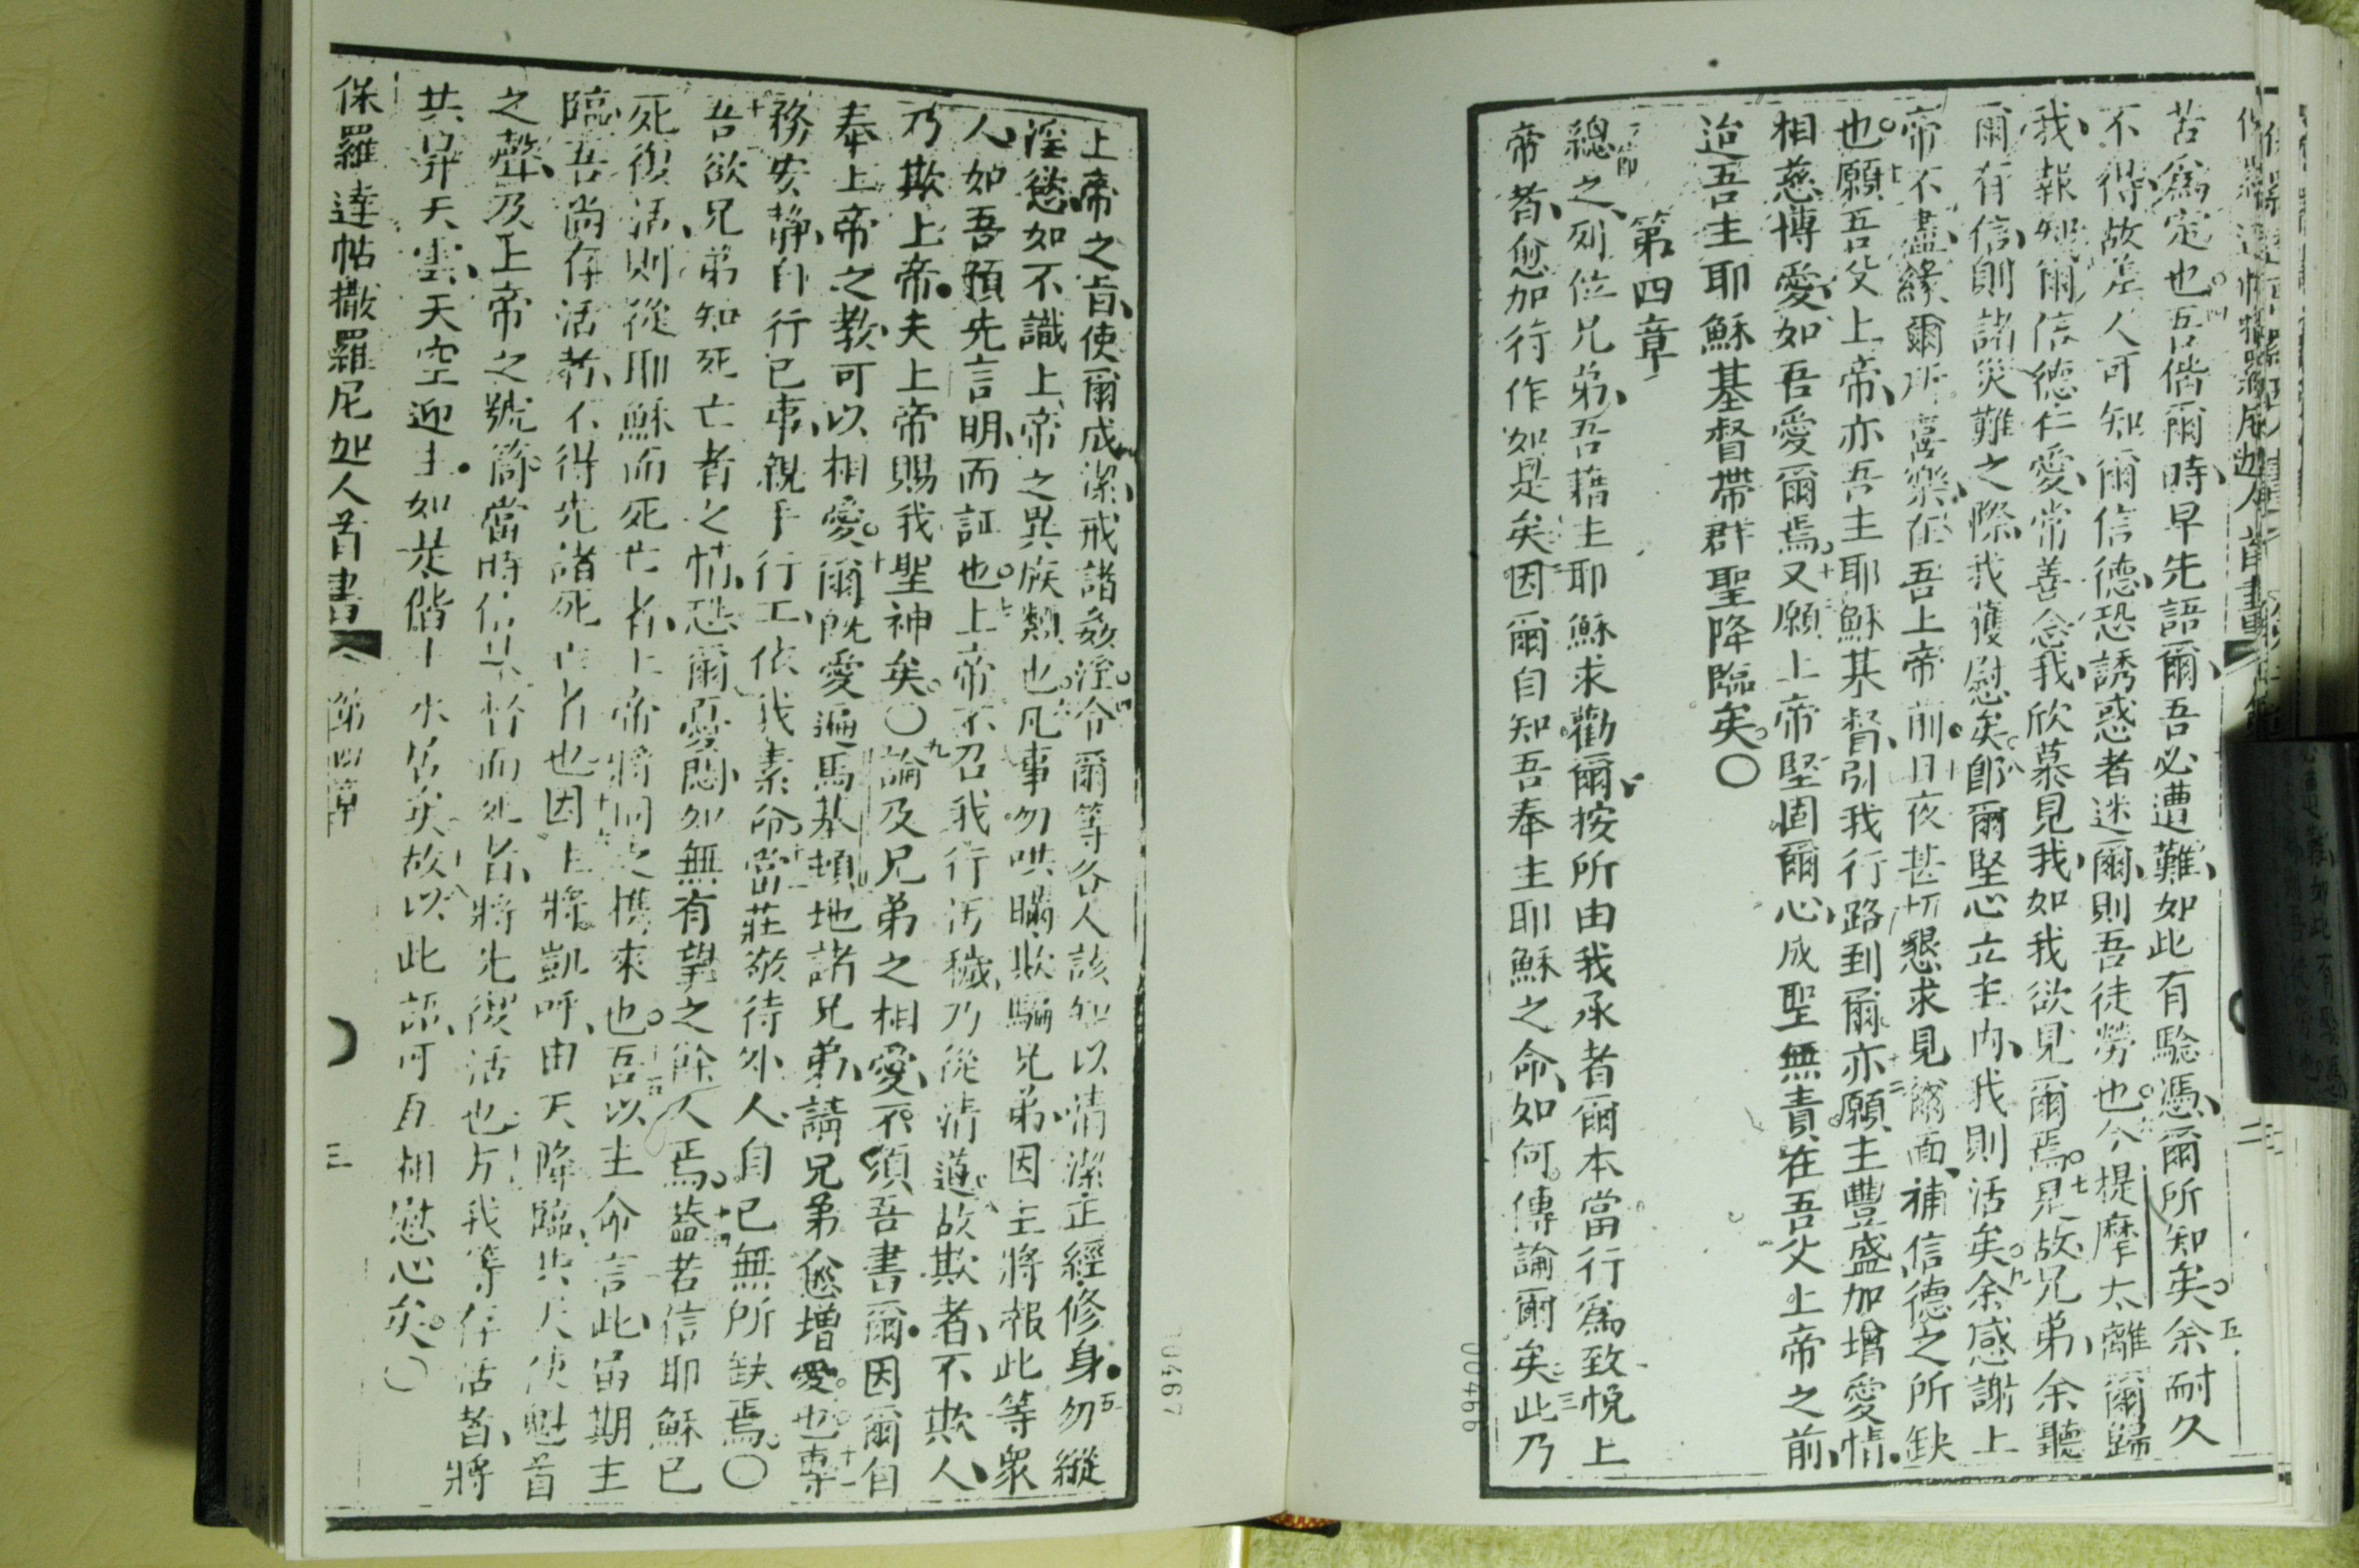 苦爲定也吾偕爾時早先語爾吾必遭難如此有驗憑爾所知矣余耐久
不得故差人可知爾信德恐誘惑者迷爾則吾徒勞也今提摩太離爾歸
我報知爾信德仁愛常善念我欣慕見我如我欲見爾焉是故兄弟余聽
爾有信則諸災難之際我獲慰矣卽爾堅心立主內我則活矣余感謝上
帝不盡緣爾所喜樂在吾上帝前日夜甚切懇求見爾面補信德之所缺
也願吾父上帝亦吾主耶穌基督引我行路到爾亦願主豐盛加增愛情
相慈博愛如吾愛爾焉又願上帝堅固爾心成聖無責在吾父上帝之前
迨吾主耶穌基督帶群聖降臨矣〇
第四章
總之列位兄弟吾藉主耶穌求勸爾按所由我承者爾本當行爲致悅上
帝者愈加行作如是矣因爾自知吾奉主耶穌之命如何傳論爾矣此乃
00466
上帝之旨使爾成潔戒諸姦淫令爾等各人該知以清潔正經修身勿縱
淫慾如不識上帝之異族類也凡事勿哄瞞欺騙兄弟因主將報此等衆
人如吾預先言明而証也上帝不召我行污穢乃從清道故欺者不欺人
乃欺上帝夫上帝賜我聖神矣〇論及兄弟之相愛不須吾書爾因爾自
奉上帝之教可以相愛爾旣愛遍馬基頓地諸兄弟請兄弟愈增愛也專
務安静自行已事親手行工依我素命當莊敬待外人自已無所缺焉〇
吾欲兄弟知死亡者之情恐爾憂悶如無有望之餘人焉蓋若信耶穌已
死復活則從耶穌而死亡者上帝將同之攜來也吾以主命言此留期主
臨吾尚存活者不得先諸死亡者也因主將凱呼由天降臨共天使魁首
之聲及上帝之號筒當時信基督而死者將先復活也方我等存活者將
共昇天雲天空迎主如是偕主永居矣故以此語可互相慰心矣〇
保羅達帖撒羅尼迦人首書 第四章 三
00467